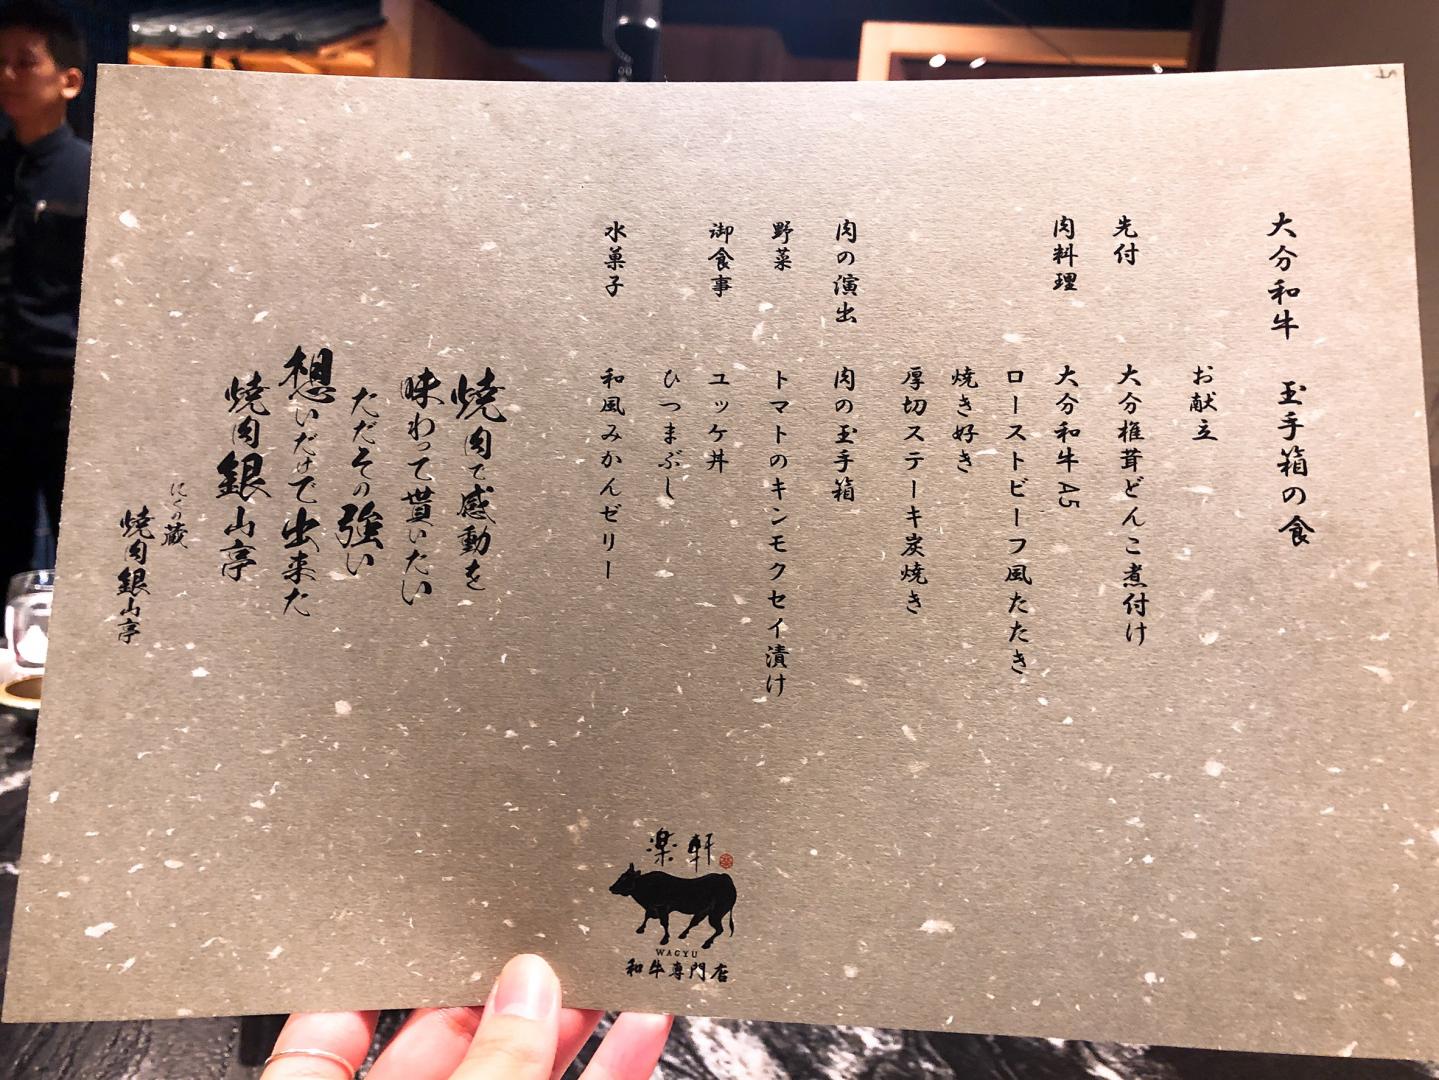 大分和牛 玉手箱の食
お献立
先付 大分椎茸どんこ煮付け
肉料理 大分和牛 A5
ローストビーフ風たたき
焼き好き
厚切ステーキ炭焼き
肉の演出 肉の玉手箱
野菜 トマトのキンモクセイ漬け
御食事 ユッケ丼
ひつまぶし
水菓子 和風みかんゼリー
焼肉で感動を
味わって貰いたい
ただその強い
想いだけで出来た
焼肉銀山亭
にくの蔵
焼肉銀山亭
楽軒
WAGYU
和牛専門店